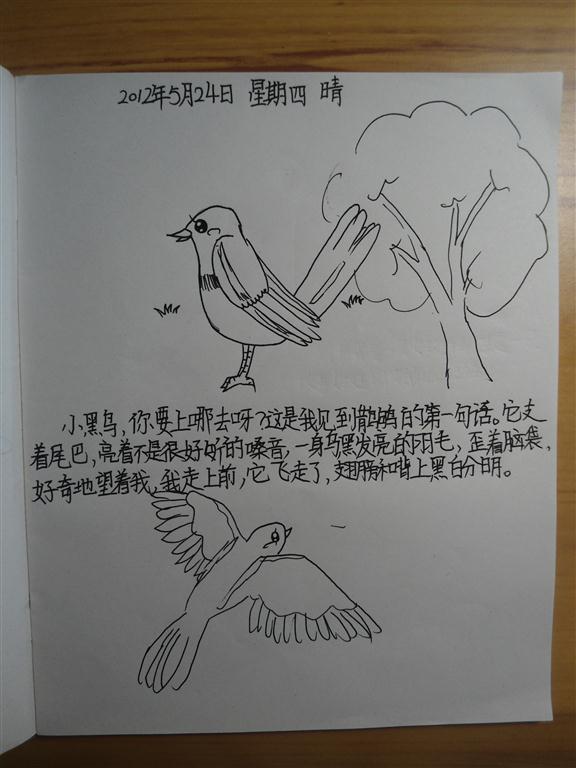 2012年5月24日 星期四 晴
小黑鸟，你要上哪去呀？这是我见到鹊鸲的第一句话。它丈
着尾巴，亮着不是很好听的嗓音，一身乌黑发亮的羽毛，歪着脑袋，
好奇地望着我，我走上前，它飞走了，翅膀和背上黑白分明。